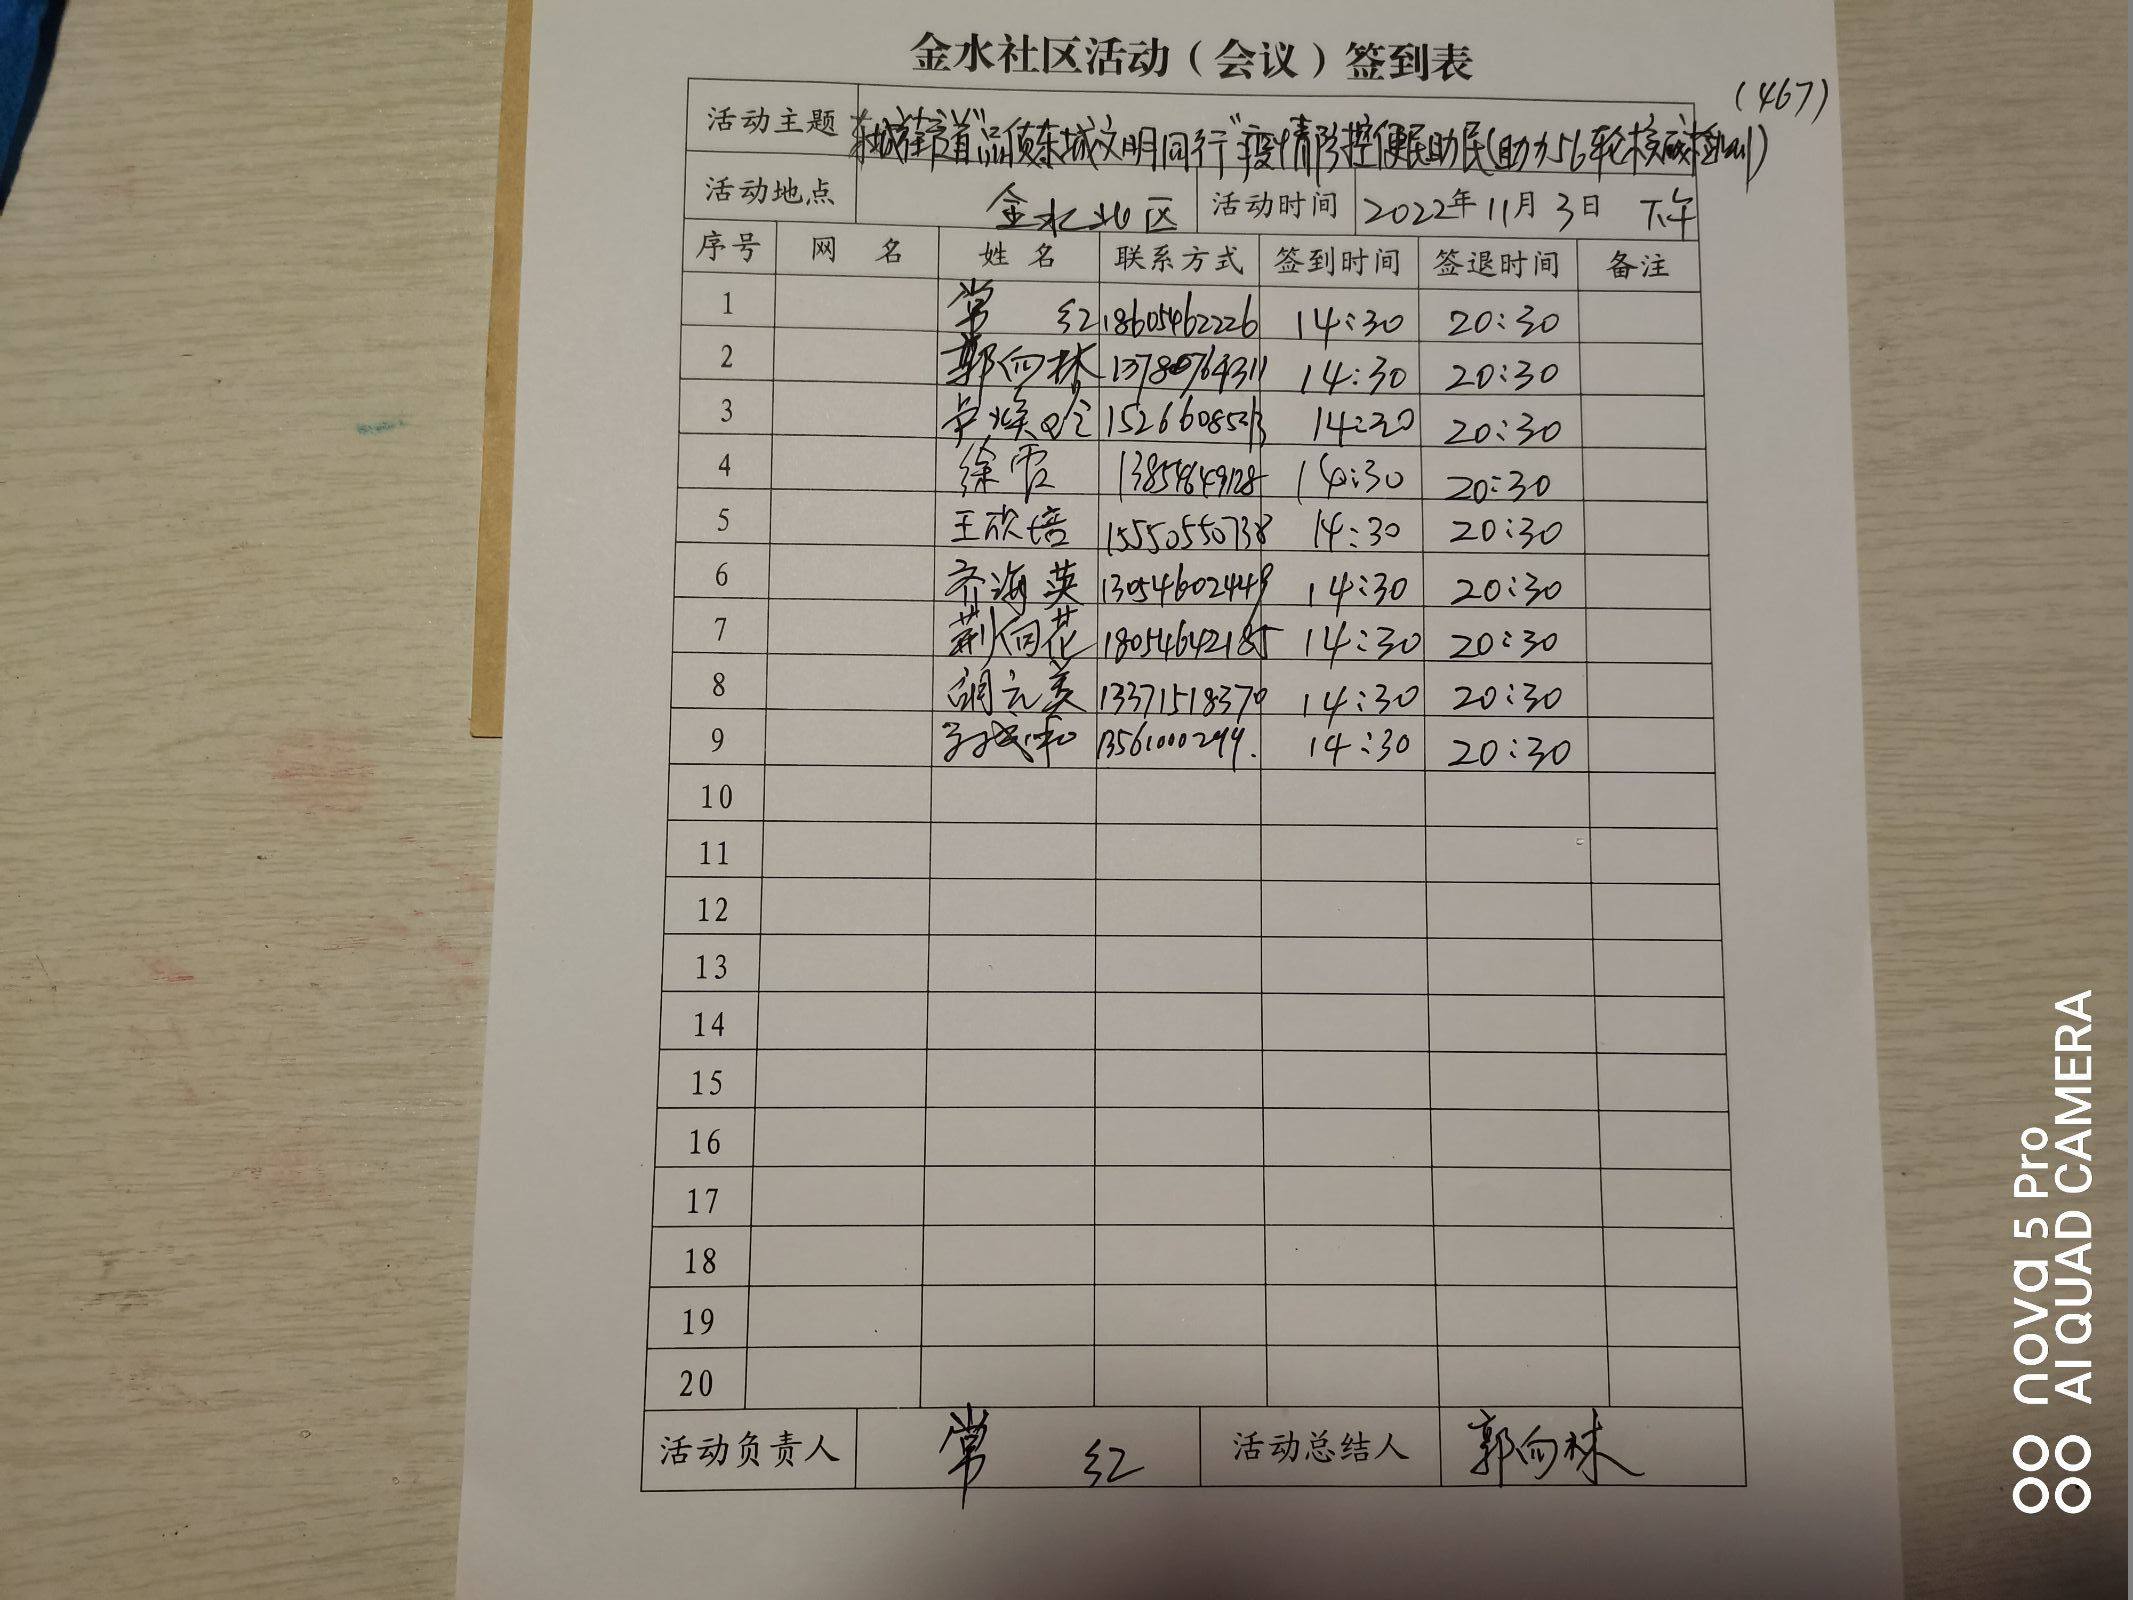 金水社区活动（会议）签到表
(467)
活动主题 东城街道"品质东城文明同行"疫情防控便民助民(助力56轮核酸检测)
活动地点 金水北区 活动时间 2022年11月3日 下午
序号 网 名 姓 名 联系方式 签到时间 签退时间 备注
1 常 红 18605462226 14:30 20:30
2 郭向林 13780764311 14:30 20:30
3 14:30 20:30
4 徐霞 13854649128 14:30 20:30
5 王欣培 15550550738 14:30 20:30
6 齐海英 13054602449 14:30 20:30
7 荆向花 18054642185 14:30 20:30
8 胡元美 13371518370 14:30 20:30
9 14:30 20:30
10
11
12
13
14
15
16
17
18
19
20
活动负责人 常 红 活动总结人 郭向林
nova 5 Pro
AI QUAD CAMERA